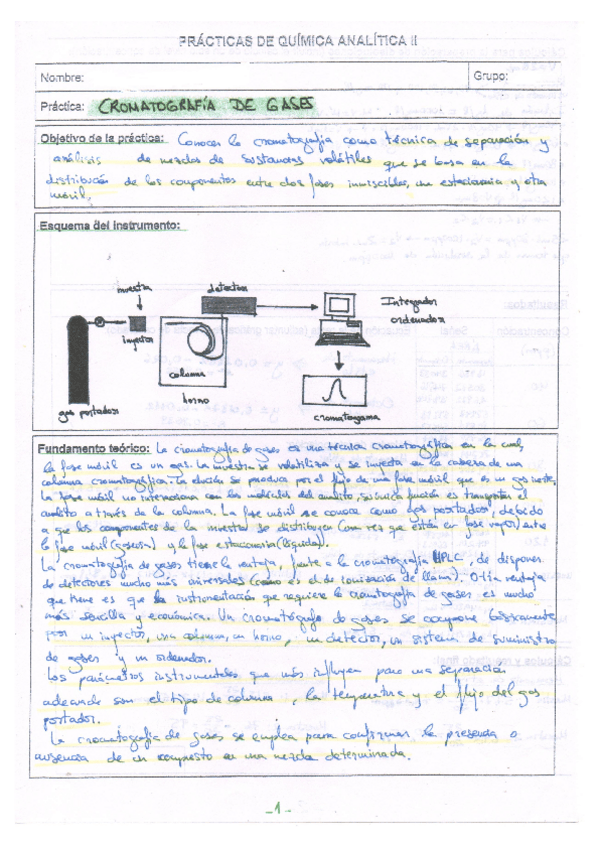 PRÁCTICAS DE QUÍMICA ANALÍTICA II
Nombre: Grupo:
Práctica: CROMATOGRAFÍA DE GASES
Objetivo de la práctica: Conocer la cromatografía como técnica de separación y
análisis de mezclas de sustancias volátiles que se basa en la
distribución de los componentes entre dos fases inmiscibles, una estacionaria y otra
móvil.
Esquema del instrumento:
muestra
detector
Integrador
ordenador
inyector
columna
horno
gas portador
cromatograma
Fundamento teórico: La cromatografía de gases es una técnica cromatográfica en la cual,
la fase móvil es un gas. La muestra se volatiliza y se inyecta en la cabeza de una
columna cromatográfica. La elución se produce por el flujo de una fase móvil que es un gas inerte.
La fase móvil no interacciona con las moléculas del analito, su única función es transportar el
analito a través de la columna. La fase móvil se conoce como gas portador, debido
a que los componentes de la muestra se distribuyen (una vez que están en fase vapor) entre
la fase móvil (gaseosa) y la fase estacionaria (líquida).
La cromatografía de gases tiene la ventaja, frente a la cromatografía HPLC, de disponer
de detectores mucho más universales (como es el de ionización de llama). Otra ventaja
que tiene es que la instrumentación que requiere la cromatografía de gases es mucho
más sencilla y económica. Un cromatógrafo de gases se compone básicamente
por un inyector, una columna, un horno, un detector, un sistema de suministro
de gases y un ordenador.
Los parámetros instrumentales que más influyen para una separación
adecuada son el tipo de columna, la temperatura y el flujo del gas
portador.
La cromatografía de gases se emplea para confirmar la presencia o
ausencia de un compuesto en una mezcla determinada.
-1-